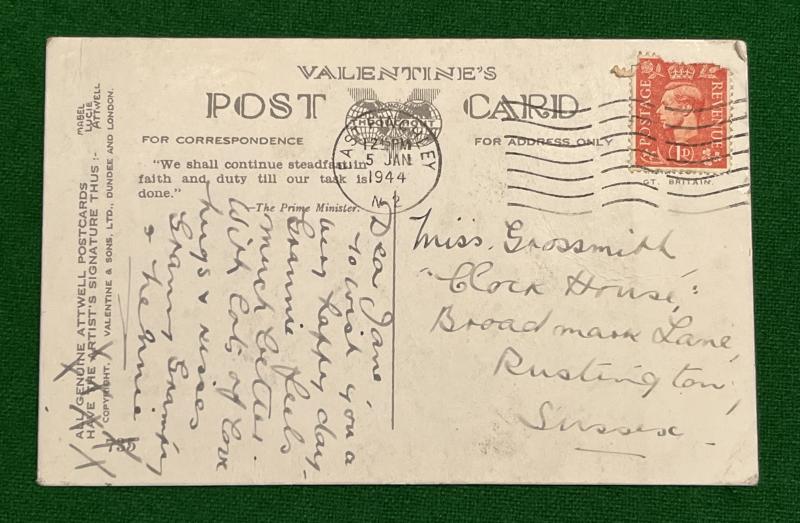 VALENTINE'S
POST CARD
FOR CORRESPONDENCE
FOR ADDRESS ONLY
"We shall continue steadfast in
faith and duty till our task is
done."
—The Prime Minister.
12 15 PM
5 JAN
1944
POSTAGE
REVENUE
1D
GT. BRITAIN.
Miss. Grossmith
"Clock House",
Broadmark Lane,
Rustington
Sussex
Dear Jane
to wish you a
very happy day -
Grannie feels
much better.
With lots of love
hugs & kisses
Granny
&
X X X X
ALL GENUINE ATTWELL POSTCARDS
HAVE THE ARTIST'S SIGNATURE THUS :-
MABEL
LUCIE
ATTWELL
COPYRIGHT. VALENTINE & SONS, LTD., DUNDEE AND LONDON.